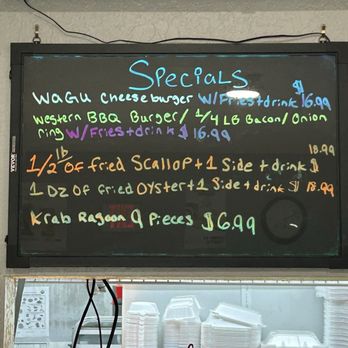 Specials
Wagu Cheeseburger W/Fries+drink $16.99
Western BBQ Burger/ 1/4 LB Bacon/Onion
ring W/Fries+drink $16.99
1/2 lb of fried Scallop+1 Side+drink $18.99
1 Dz Of fried Oyster+1 Side+drink $18.99
Krab Ragoon 9 Pieces $6.99